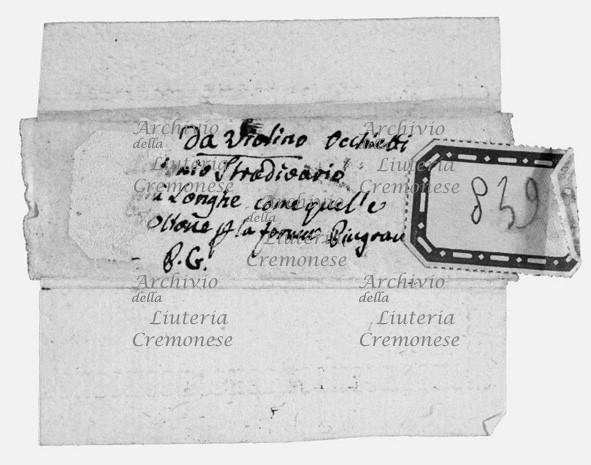 da Violino Occhietti
Stradivario
Longhe come quelle
P. G.
839
Archivio
della
Liuteria
Cremonese
Archivio
della
Liuteria
Cremonese
Archivio
della
Liuteria
Cremonese
Archivio
della
Liuteria
Cremonese
Archivio
della
Liuteria
Cremonese